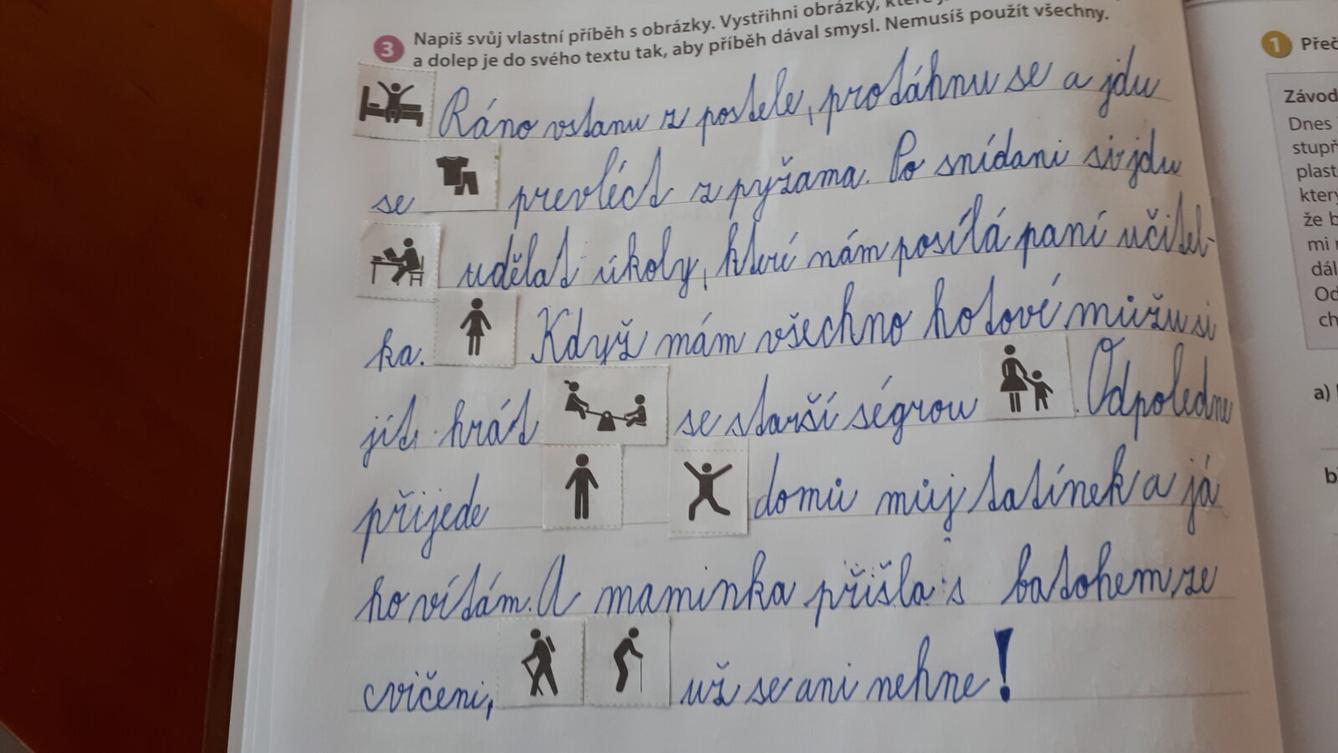 3 Napiš svůj vlastní příběh s obrázky. Vystřihni obrázky,
a dolep je do svého textu tak, aby příběh dával smysl. Nemusíš použít všechny.
Ráno vstanu z postele, protáhnu se a jdu
se prevléct z pyžama. Po snídani si jdu
udělat úkoly, které nám posílá paní učitel-
ka. Když mám všechno hotové můžu si
jít hrát se starší ségrou. Odpoledne
přijede domů můj tatínek a já
ho vítám. A maminka přišla s batohem, ze
cvičeni, už se ani nehne!
1 Přeč
Závod
Dnes
stupň
plast
kter
že b
mi
dál
Od
ch
a)
b